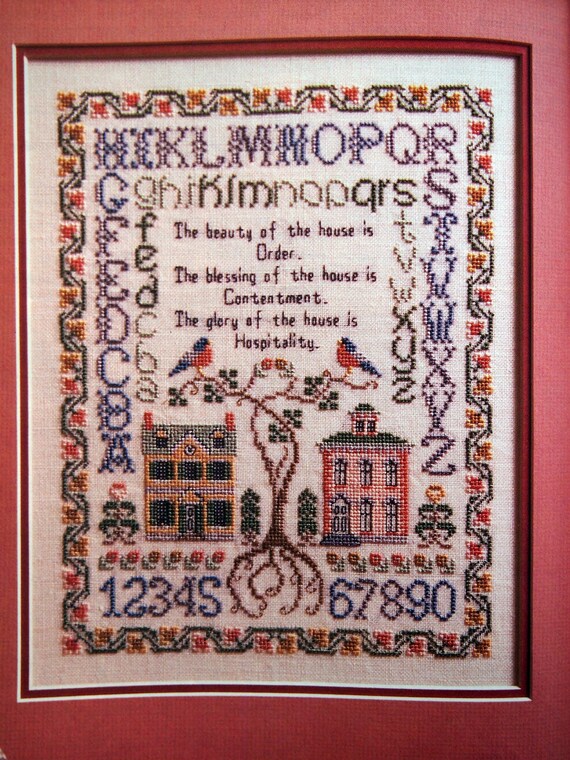 HIKLMNOPQR
G
F
E
D
C
B
A
ghiklmnopqrs
f
e
d
c
b
a
The beauty of the house is
Order.
The blessing of the house is
Contentment.
The glory of the house is
Hospitality.
t
v
w
x
y
z
S
T
V
W
X
Y
Z
12345
67890